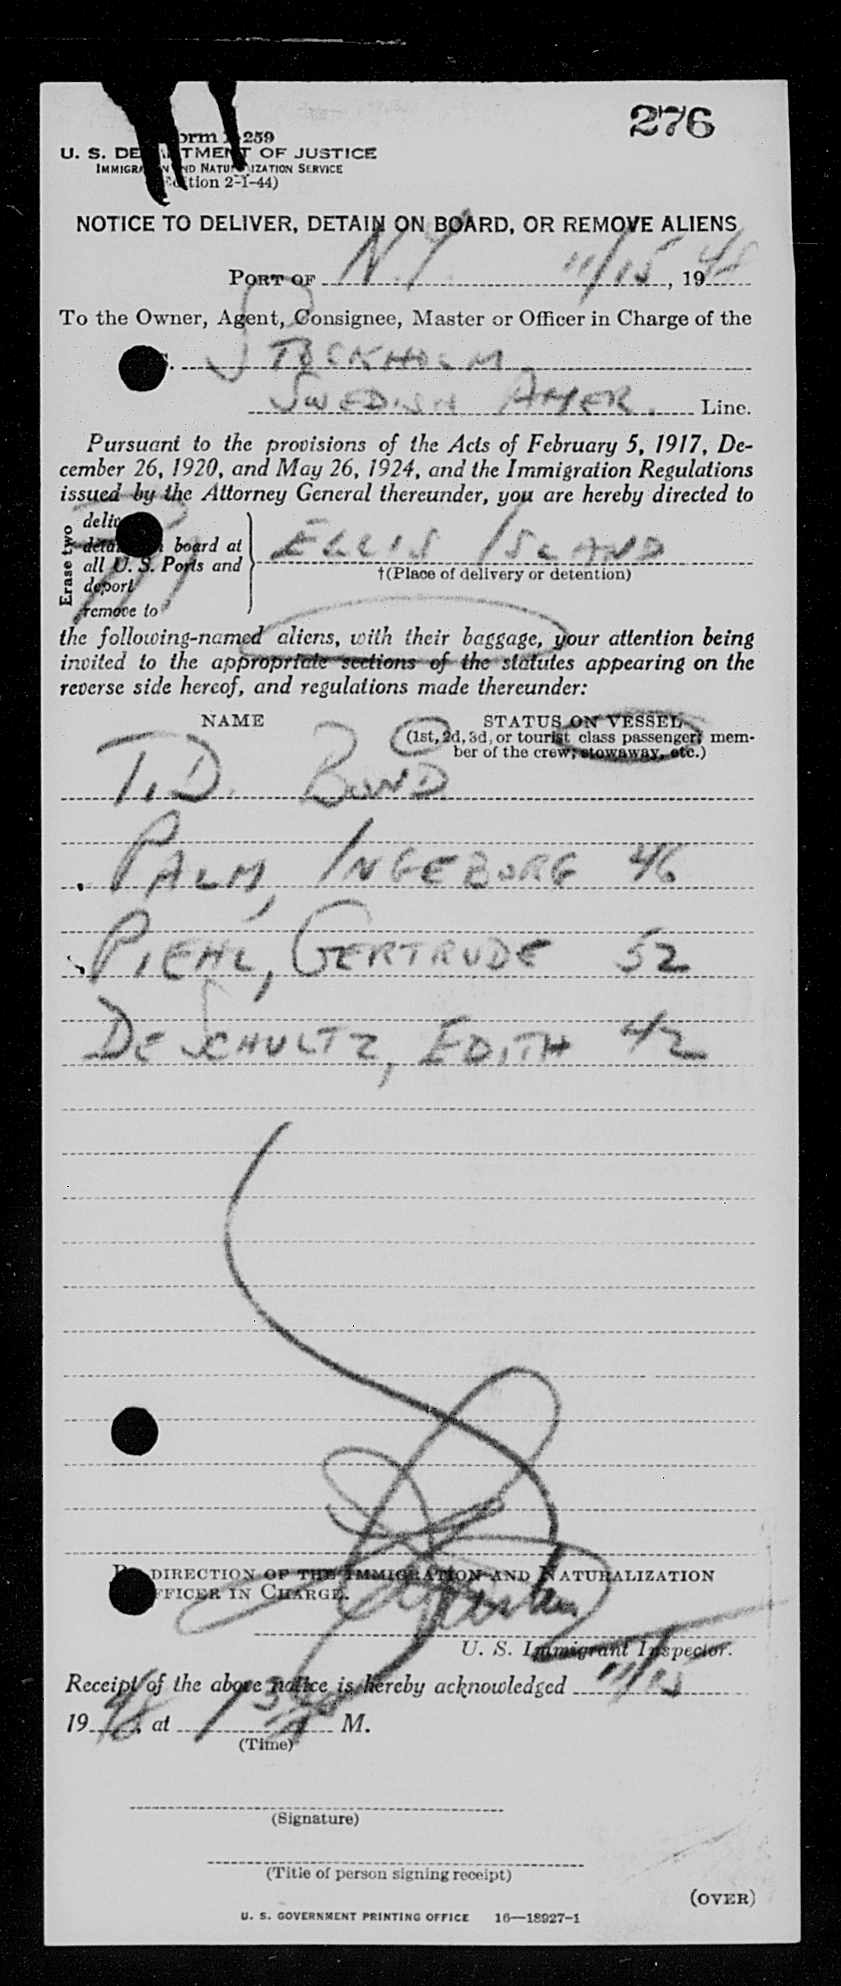 276
259
U. S. DEPARTMENT OF JUSTICE
IMMIGRATION AND NATURALIZATION SERVICE
(Edition 2-1-44)
NOTICE TO DELIVER, DETAIN ON BOARD, OR REMOVE ALIENS
PORT OF N.Y. 11/15, 1948
To the Owner, Agent, Consignee, Master or Officer in Charge of the
STOCKHOLM
SWEDISH AMER. Line.
Pursuant to the provisions of the Acts of February 5, 1917, De-
cember 26, 1920, and May 26, 1924, and the Immigration Regulations
issued by the Attorney General thereunder, you are hereby directed to
Erase two
deliver
detain on board at
all U. S. Ports and
deport
remove to
ELLIS ISLAND
†(Place of delivery or detention)
the following-named aliens, with their baggage, your attention being
invited to the appropriate sections of the statutes appearing on the
reverse side hereof, and regulations made thereunder:
NAME STATUS ON VESSEL
(1st, 2d, 3d, or tourist class passenger; mem-
ber of the crew; stowaway, etc.)
T.D. BOND
PALM, INGEBORG 46
PIEHL, GERTRUDE 52
DE SCHULTZ, EDITH 42
BY DIRECTION OF THE IMMIGRATION AND NATURALIZATION
OFFICER IN CHARGE.
U. S. Immigrant Inspector.
Receipt of the above notice is hereby acknowledged 11/15
1948, at M.
(Time)
(Signature)
(Title of person signing receipt)
(OVER)
U. S. GOVERNMENT PRINTING OFFICE 16—18927-1